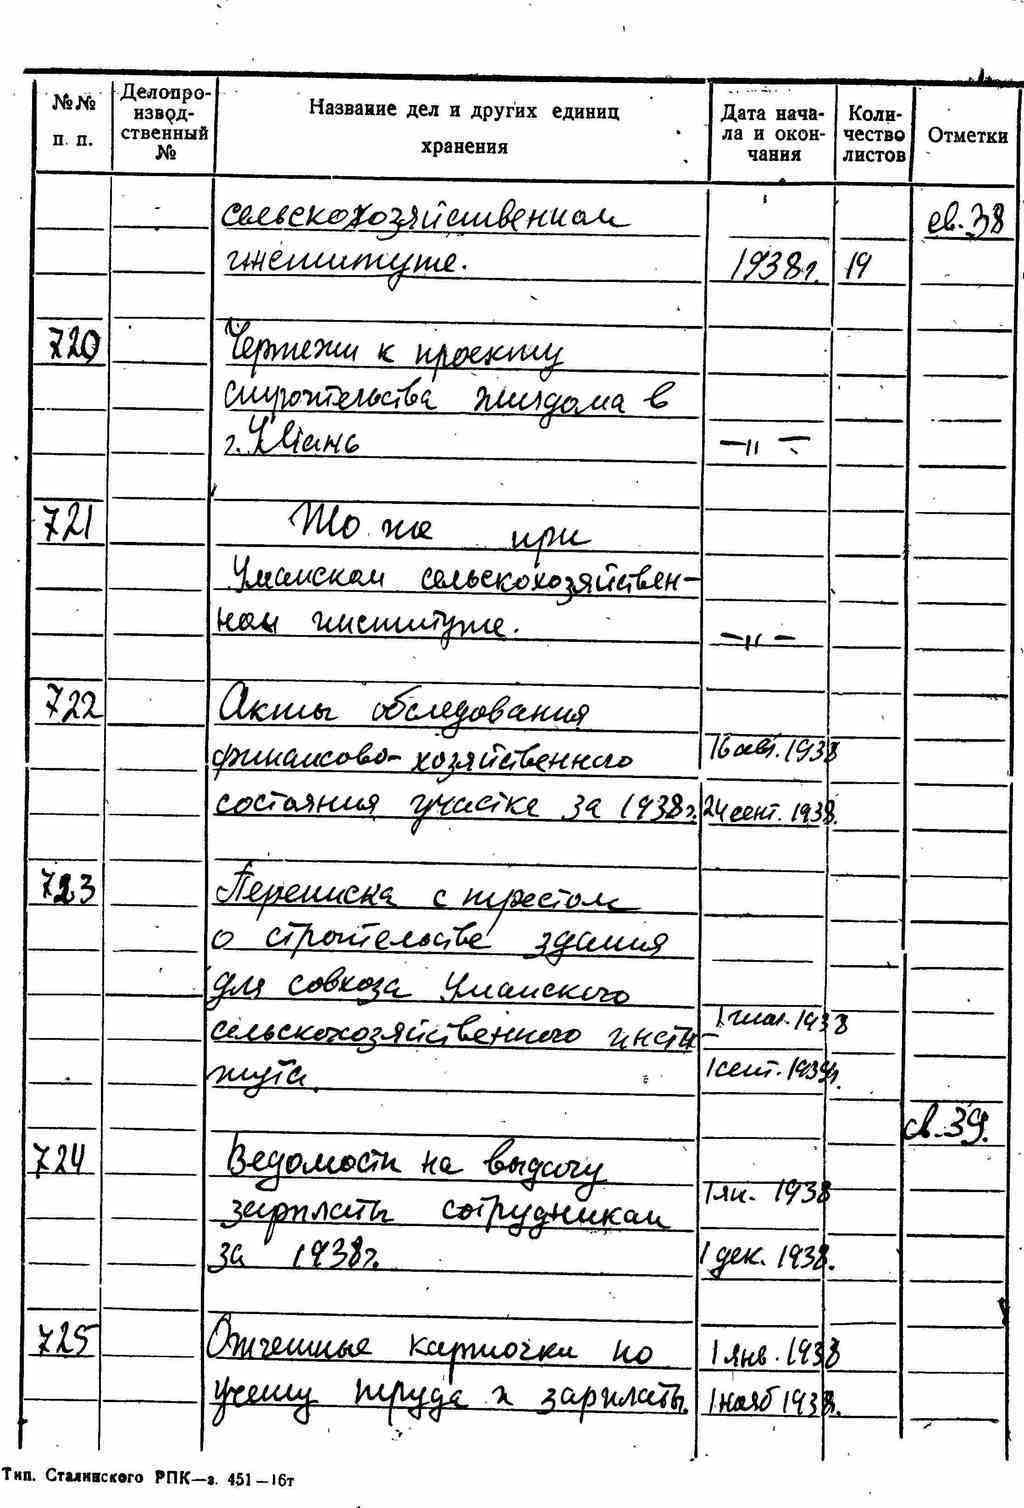 №№ п. п. Делопро-извод-ственный № Название дел и других единиц хранения Дата нача-ла и окон-чания Коли-чество листов Отметки
сельскохозяйственном св. 38
институте. 1938г. 19
720 Чертежи к проекту
строительства жилдома в
г. Умань —"—
721 То же при
Уманском сельскохозяйствен-
ном институте. —"—
722 Акты обследования
финансово-хозяйственного 16 авг. 1938
состояния участка за 1938г. 24 сент. 1938.
723 Переписка с трестом
о строительстве здания
для совхоза Уманского
сельскохозяйственного инсти- 1 1938
тута. 1 сент. 1938г.
св. 39.
724 Ведомости на выдачу
зарплаты сотрудникам 1 ян. 1938
за 1938г. 1 дек. 1938.
725 Отчетные карточки по 1 янв. 1938
учету труда и зарплаты. 1 нояб 1938.
Тип. Сталинского РПК—з. 451—16т